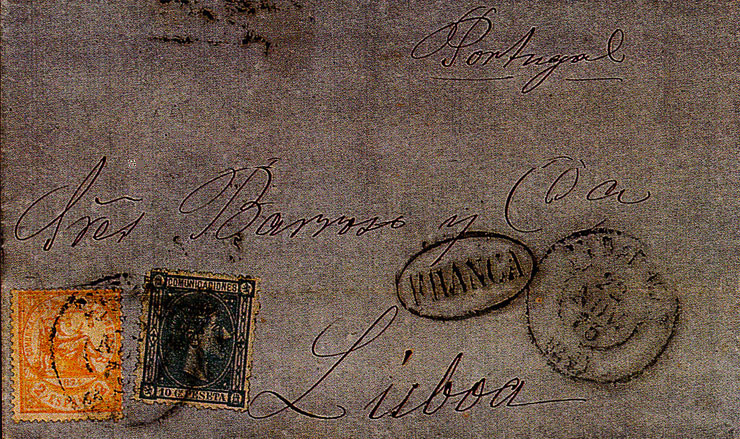 Portugal
Sres Barroso y Cia
FRANCA
COMUNICACIONES
10 C. PESETA
Lisboa